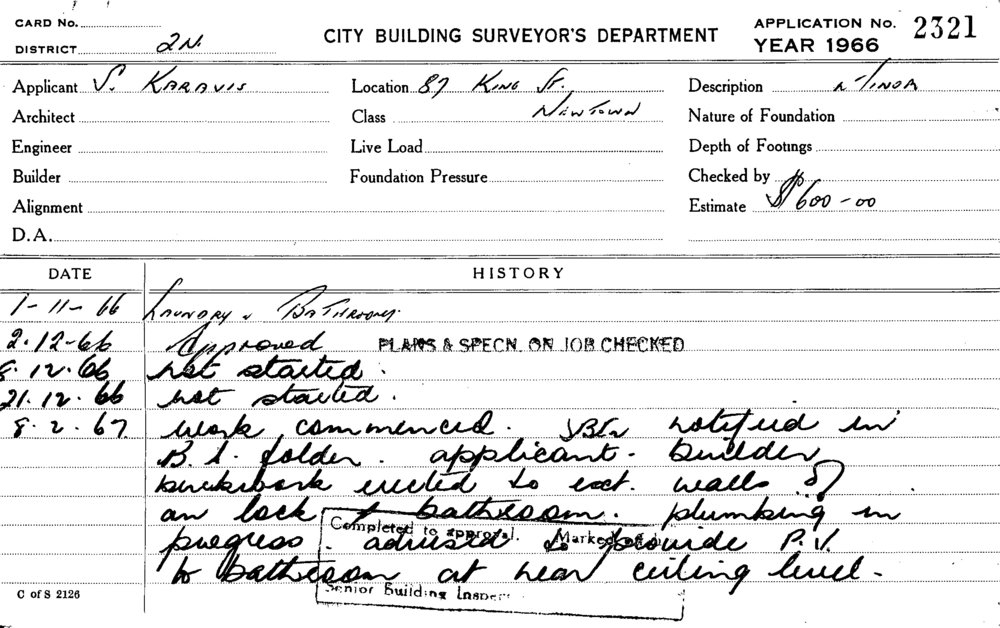 CARD No.
DISTRICT 2N.
CITY BUILDING SURVEYOR'S DEPARTMENT
APPLICATION No. 2321
YEAR 1966
Applicant S. KARAVIS Location 87 KING ST. Description MINOR
Architect Class NEWTOWN Nature of Foundation
Engineer Live Load Depth of Footings
Builder Foundation Pressure Checked by
Alignment Estimate $600-00
D.A.
DATE HISTORY
1-11-66 LAUNDRY & BATHROOM.
2.12-66 Approved PLANS & SPECN. ON JOB CHECKED
8.12.66 not started.
21.12.66 not started.
8.2.67 work commenced. notified in
B.I. folder. applicant - builder
brickwork erected to ext. walls of
an bathroom. plumbing in
progress. advised to provide P.V.
to bathroom at near ceiling level.
Completed to approval. Marked off in
Senior Building Inspec
C of S 2126